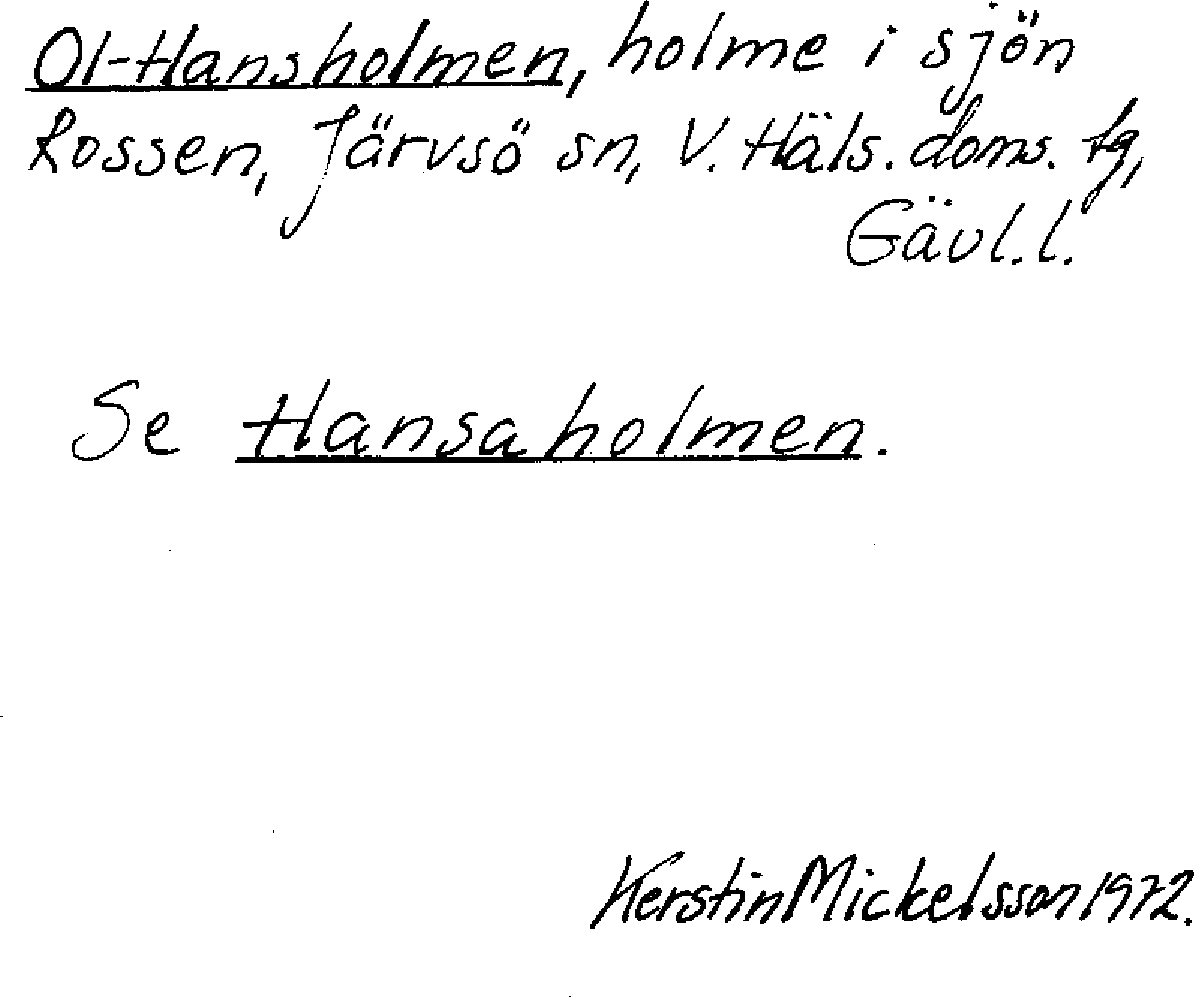 Ol-Hansholmen, holme i sjön
Rossen, Järvsö sn, V. Häls. doms. tg,
Gävl.l.
Se Hansaholmen.
Kerstin Mickelsson 1972.